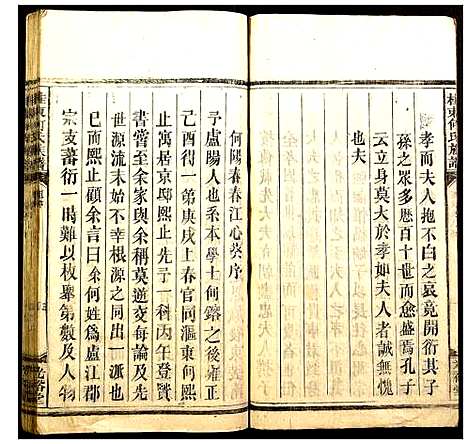 桂東何氏族譜
孝而夫人抱不白之哀竟開衍其子
孫之眾多歷百十世而愈盛焉孔子
云立身莫大於孝如夫人者誠無愧
也夫
何陽春春江心葵序
予盧陽人也本學士何鎔之後雍正
己酉得一第庚戌上春官同滙東何熙
止寓居京邸熙止先予一科丙午登賢
書暨至余家與余稱莫逆交每論及先
世源流未始不幸根源之同出一派也
已而熙止顧余言曰余何姓為廬江郡
宗支蕃衍一時難以枚舉第數及人物